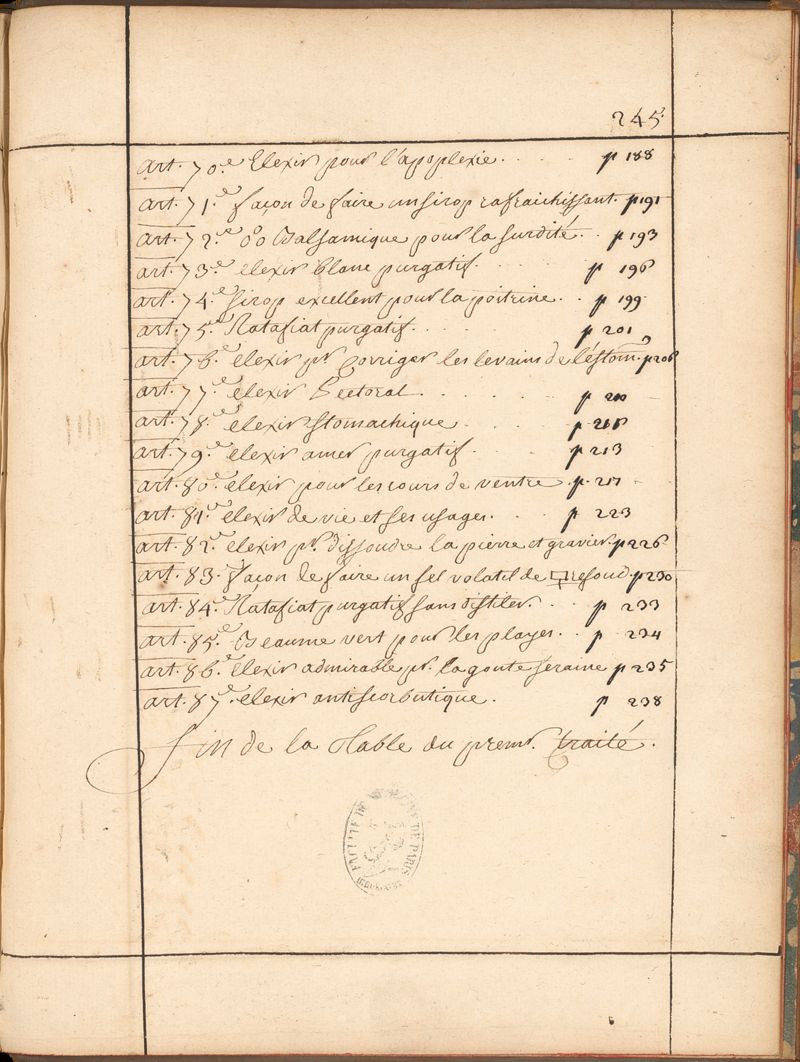 245.
art. 70.e Elexir pour l'apoplexie. p 188
art. 71.e façon de faire un sirop rafraichissant. p 191
art. 72.e Balsamique pour la surdité. p 193
art. 73.e elexir blanc purgatif. p 196
art. 74.e sirop excellent pour la poitrine. p 199
art. 75.e Ratafiat purgatif. p 201
art. 76.e elexir pr. Corriger les levains de l'éstom. p 206
art. 77.e elexir Pectoral. p 210
art. 78.e elexir stomachique. p
art. 79.e elexir amer purgatif. p 213
art. 80.e elexir pour les cours de ventre. p. 217
art. 81.e elexir de vie et ses usages. p 223
art. 82.e elexir pr. dissoudre la pierre et gravier. p 226
art. 83. façon de faire un sel volatil de p 230
art. 84. Ratafiat purgatif sans distiler. p 233
art. 85.e Beaume vert pour les playes. p 234
art. 86.e elexir admirable pr. la goute seraine p 235
art. 87.e elexir antiscorbutique. p 238
fin de la table du premr. traité.
FACULTE DE MEDECINE DE PARIS